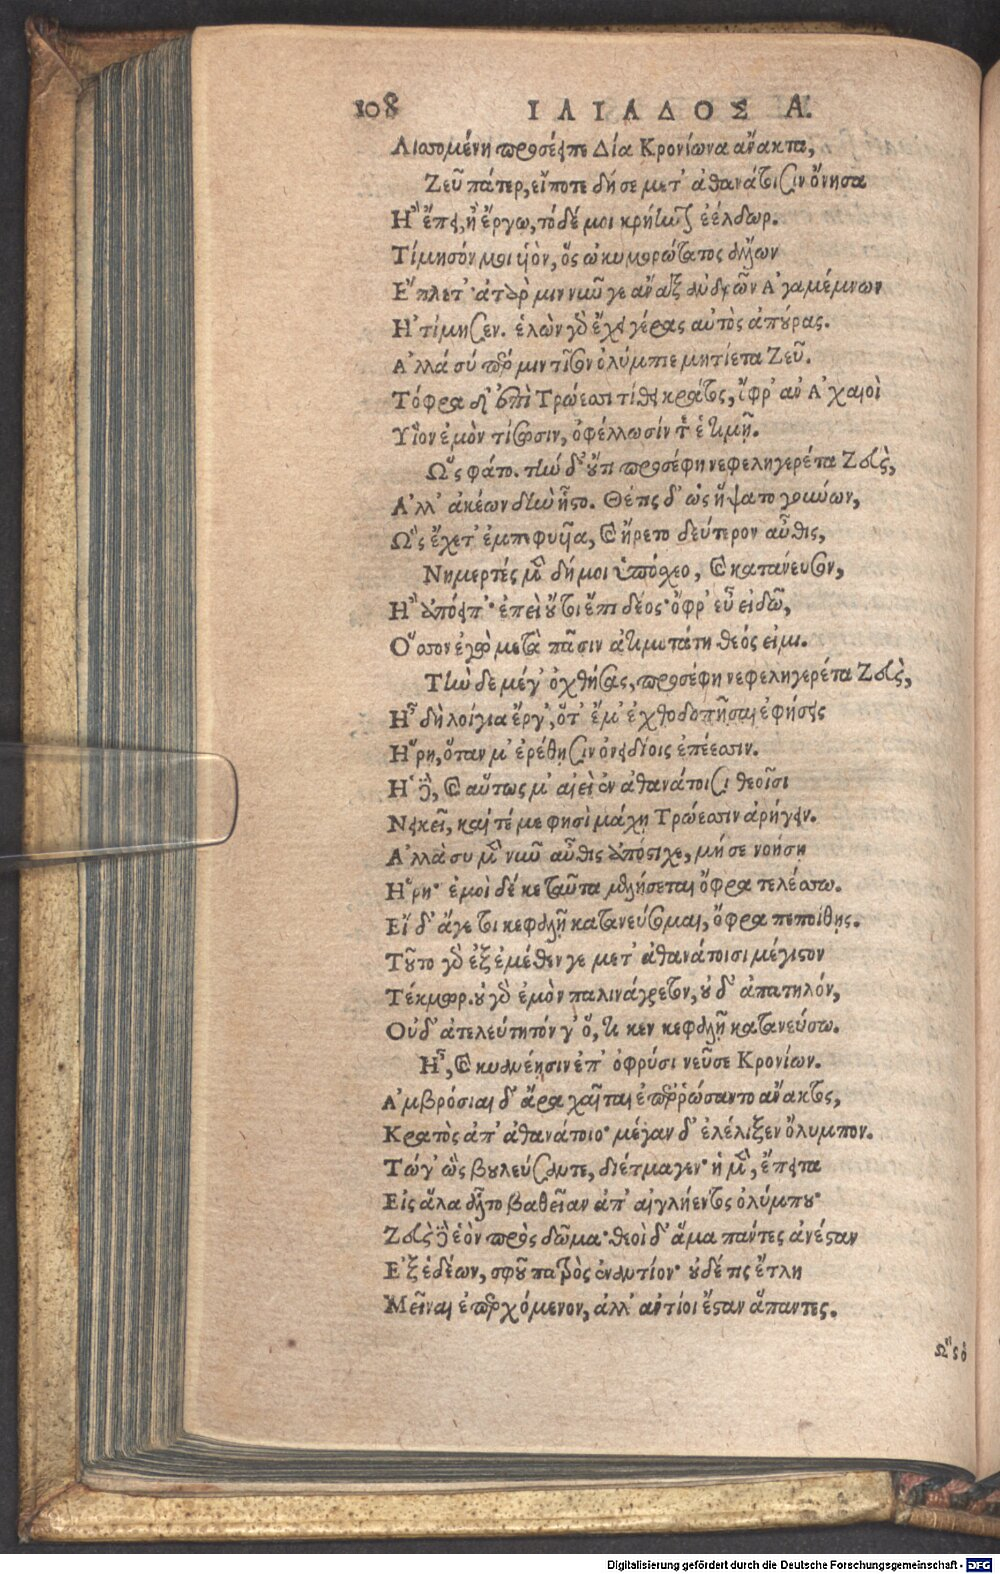 108 ΙΛΙΑΔΟΣ Α.
Λισσομένη προσέειπε Δία Κρονίωνα ἄνακτα,
Ζεῦ πάτερ, εἴποτε δή σε μετ' ἀθανάτοισιν ὄνησα
Η῍ ἔπει, ἢ ἔργῳ, τόδέ μοι κρήηνον ἐέλδωρ.
Τίμησόν μοι υἱὸν, ὃς ὠκυμορώτατος ἄλλων
Ε῎πλετ' ἀτὰρ μιν νῦν γε ἄναξ ἀνδρῶν Α᾿γαμέμνων
Η᾿τίμησεν. ἑλὼν γὰρ ἔχει γέρας αὐτὸς ἀπούρας.
Α᾿λλά σύ πέρ μιν τῖσον ὀλύμπιε μητίετα Ζεῦ.
Τόφρα δ' ἐπὶ Τρώεσσι τίθει κράτος, ὄφρ' ἂν Α᾿χαιοὶ
Υἱὸν ἐμὸν τίσωσιν, ὀφέλλωσίν τέ ἑ τιμῇ.
Ω῝ς φάτο. τὴν δ' οὔτι προσέφη νεφεληγερέτα Ζεὺς,
Α᾿λλ' ἀκέων δὴν ἧστο. Θέτις δ' ὡς ἥψατο γούνων,
Ω῝ς ἔχετ' ἐμπεφυῖα, καὶ ἤρετο δεύτερον αὖθις,
Νημερτές μὲν δή μοι ὑπόσχεο, καὶ κατάνευσον,
Η῍ ἀπόειπ' ἐπεὶ οὔ τοι ἔπι δέος· ὄφρ' εὖ εἰδῶ,
Ο῞σσον ἐγὼ μετὰ πᾶσιν ἀτιμοτάτη θεός εἰμι.
Τὴν δὲ μέγ' ὀχθήσας, προσέφη νεφεληγερέτα Ζεὺς,
Η῏ δὴ λοίγια ἔργ', ὅτ' ἔμ' ἐχθοδοπῆσαι ἐφήσεις
Η῞ρῃ, ὅταν μ' ἐρέθῃσιν ὀνειδίοις ἐπέεσσιν.
Η῾ δὲ, καὶ αὔτως μ' αἰεὶ ἐν ἀθανάτοισι θεοῖσι
Νεικεῖ, καί τέ με φησὶ μάχῃ Τρώεσσιν ἀρήγειν.
Α᾿λλὰ συ μὲν νῦν αὖθις ἀπόστιχε, μή σε νοήσῃ
Η῞ρη· ἐμοὶ δέ κε ταῦτα μελήσεται ὄφρα τελέσσω.
Εἰ δ' ἄγε τοι κεφαλῇ κατανεύσομαι, ὄφρα πεποίθῃς.
Τοῦτο γὰρ ἐξ ἐμέθεν γε μετ' ἀθανάτοισι μέγιστον
Τέκμωρ. οὐ γὰρ ἐμὸν παλινάγρετον, οὐδ' ἀπατηλόν,
Οὐδ' ἀτελεύτητόν γ' ὅ, τι κεν κεφαλῇ κατανεύσω.
Η῏, καὶ κυανέῃσιν ἐπ' ὀφρύσι νεῦσε Κρονίων.
Α᾿μβρόσιαι δ' ἄρα χαῖται ἐπερρώσαντο ἄνακτος,
Κρατὸς ἀπ' ἀθανάτοιο· μέγαν δ' ἐλέλιξεν ὄλυμπον.
Τώγ' ὣς βουλεύσαντε, διέτμαγεν· ἡ μὲν, ἔπειτα
Εἰς ἅλα ἆλτο βαθεῖαν ἀπ' αἰγλήεντος ὀλύμπου·
Ζεὺς δὲ ἑὸν πρὸς δῶμα· θεοὶ δ' ἅμα πάντες ἀνέσταν
Ε᾿ξ ἑδέων, σφοῦ πατρὸς ἐναντίον· οὐδέ τις ἔτλη
Μεῖναι ἐπερχόμενον, ἀλλ' ἀντίοι ἔσταν ἅπαντες.
Ω῝ς ὁ
Digitalisierung gefördert durch die Deutsche Forschungsgemeinschaft - DFG